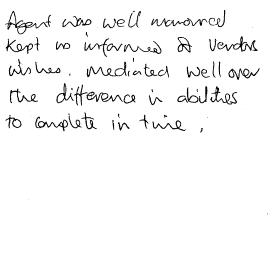 Agent was well mannered
Kept us informed of Vendors
wishes. Mediated well over
the difference in abilities
to complete in time,